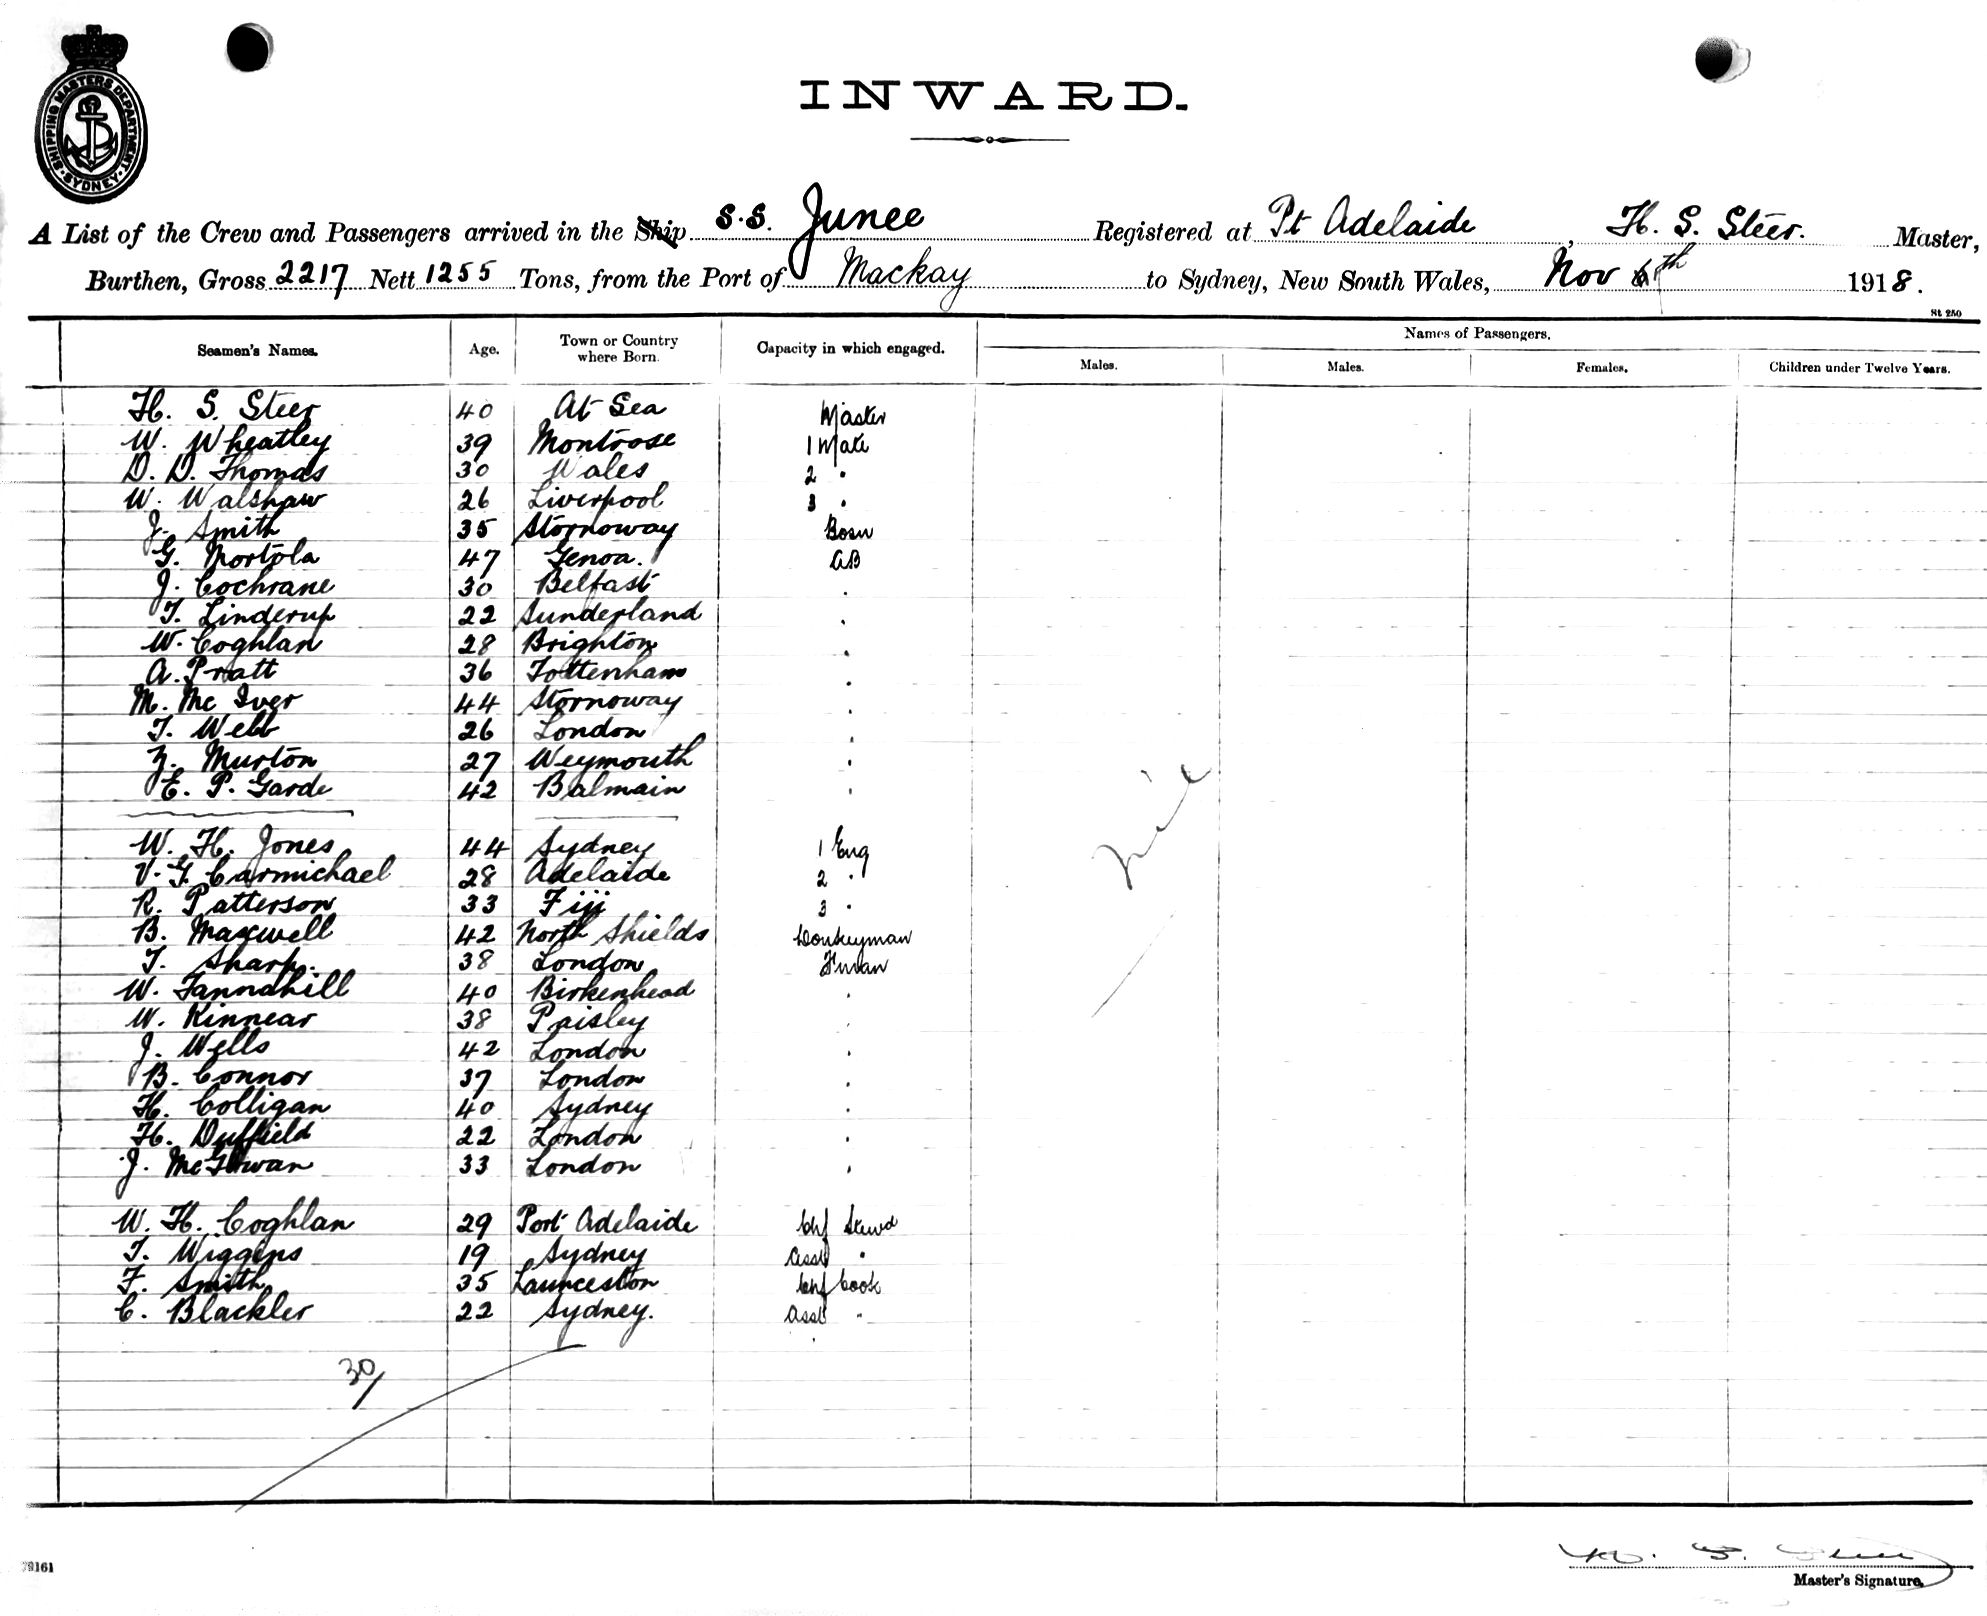 SHIPPING MASTERS DEPARTMENT. SYDNEY.
INWARD.
A List of the Crew and Passengers arrived in the Ship S.S. Junee Registered at Pt Adelaide, H. S. Steer. Master,
Burthen, Gross 2217 Nett 1255 Tons, from the Port of Mackay to Sydney, New South Wales, Nov 6th 1918.
St 250
Seamen's Names. Age. Town or Country where Born. Capacity in which engaged. Names of Passengers.
Males. Males. Females. Children under Twelve Years.
H. S. Steer 40 At Sea Master
W. Wheatley 39 Montrose 1 Mate
D. D. Thomas 30 Wales 2 "
W. Walshaw 26 Liverpool 3 "
J. Smith 35 Stornoway Bosn
G. Mortola 47 Genoa. AB
J. Cochrane 30 Belfast "
T. Linderup 22 Sunderland "
W. Coghlan 28 Brighton "
A. Pratt 36 Tottenham "
M. Mc Iver 44 Stornoway "
T. Webb 26 London "
Z. Murton 27 Weymouth "
E. P. Garde 42 Balmain "
W. H. Jones 44 Sydney 1 Eng
V. G. Carmichael 28 Adelaide 2 "
R. Patterson 33 Fiji 3 "
B. Maxwell 42 North Shields Donkeyman
T. Sharp. 38 London F'man
W. Tannahill 40 Birkenhead "
W. Kinnear 38 Paisley "
J. Wells 42 London "
B. Connor 37 London "
H. Colligan 40 Sydney "
H. Duffield 22 London "
J. McGowan 33 London "
W. H. Coghlan 29 Port Adelaide Chf Stewd
T. Wiggins 19 Sydney Asst "
F. Smith 35 Launceston Chf Cook
C. Blackler 22 Sydney. Asst "
nil
30/
Master's Signature,
79161